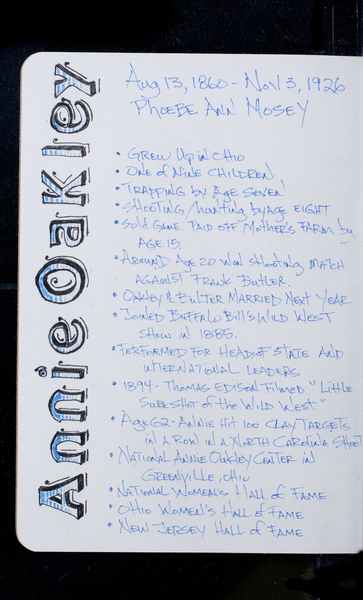 Annie Oakley
Aug 13, 1860 - Nov 3, 1926
Phoebe Ann Mosey
• Grew Up in Ohio
• One of Nine Children
• Trapping by Age Seven
• Shooting/hunting by age Eight
• Sold Game Paid off Mother's Farm by
Age 15
• Around Age 20 won shooting match
Against Frank Butler.
• Oakley & Bulter Married Next Year
• Joined Buffalo Bill's Wild West
Show in 1885.
• Performed for Heads of State and
international leaders
• 1894 - Thomas Edison Filmed "Little
Sure Shot of the Wild West"
• Age 62 - Annie Hit 100 Clay Targets
in a Row in a North Carolina Shoot
• National Annie Oakley Center in
Greenville, Ohio
• National Women's Hall of Fame
• Ohio Women's Hall of Fame
• New Jersey Hall of Fame